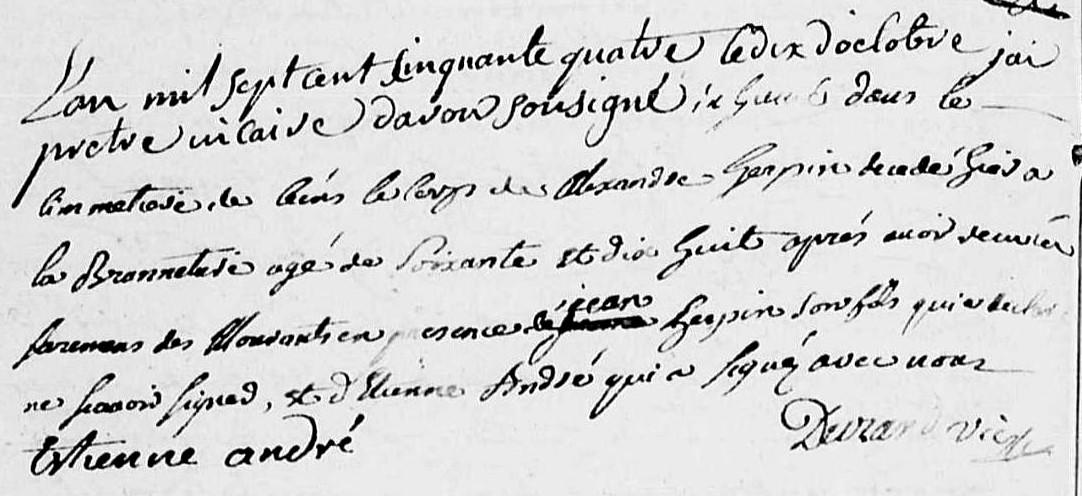 L'an mil sept cent Sinquante quatre le dix doctobre jai
pretre vicaire davon Sousigné inhumé dans le
simmetiere de leins le corps de Alexandre herpin decedé hier a
la Bronneterie agé de Soixante et dix huit aprés avoir recu les
saremens des Mourants en presence de jean herpin son fils qui a declaré
ne scavoir signer, et d'Etienne André qui a signéz avec nous
Estienne andré
Durand vic